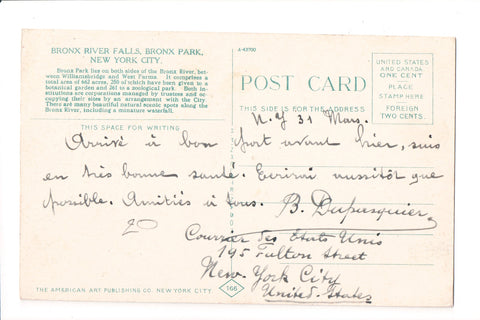 BRONX RIVER FALLS, BRONX PARK,
NEW YORK CITY.
Bronx Park lies on both sides of the Bronx River, bet-
ween Williamsbridge and West Farms. It comprises a
total area of 662 acres, 250 of which have been given to a
botanical garden and 261 to a zoological park. Both in-
stitutions are corporations managed by trustees and oc-
cupying their sites by an arrangement with the City.
There are many beautiful natural scenic spots along the
Bronx River, including a miniature waterfall.
A-43700
POST CARD
THIS SIDE IS FOR THE ADDRESS
UNITED STATES
AND CANADA
ONE CENT
PLACE
STAMP HERE
FOREIGN
TWO CENTS.
THIS SPACE FOR WRITING
N.Y 31 Mars.
Arrivé à bon port avant hier, suis
en très bonne santé. Ecrirai aussitôt que
possible. Amitiés à tous. B. Dupasquier
20
Courrier des Etats Unis
195 Fulton Street
New-York City
United-States
THE AMERICAN ART PUBLISHING CO. NEW YORK CITY.
166